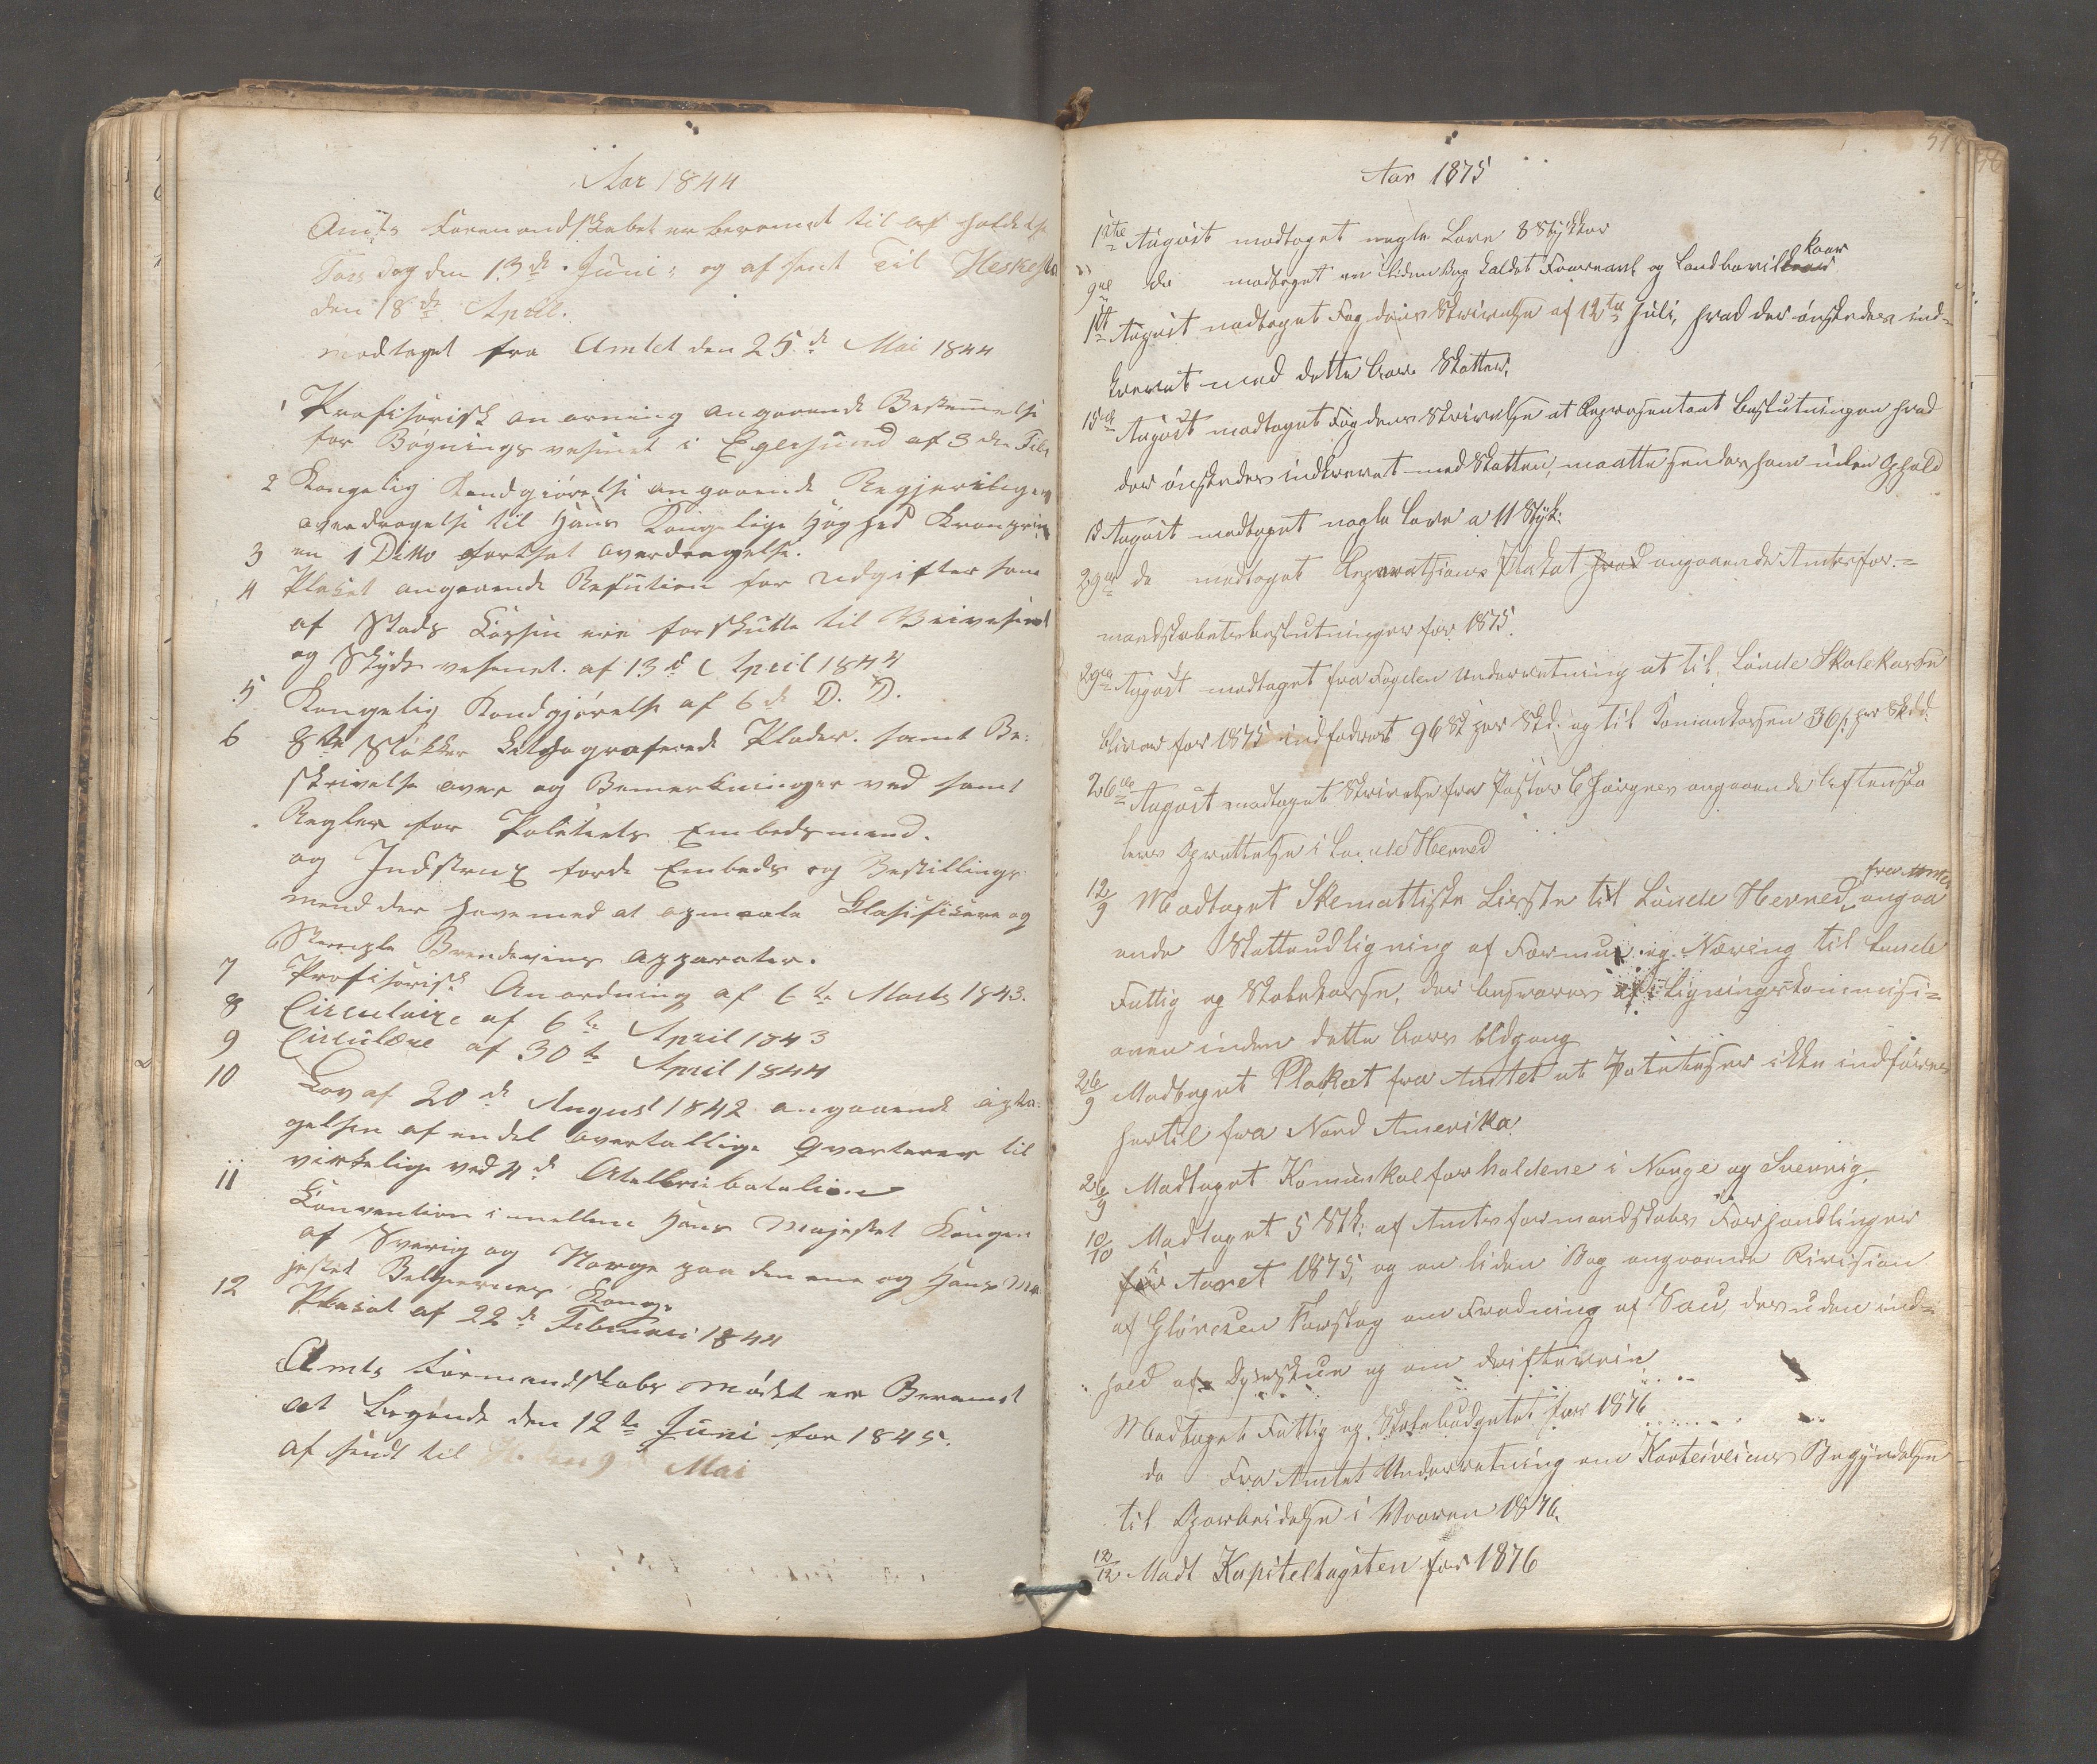 Aar 1844
Amts Formandskabet er beramet til af holdelse
Torsdag den 13de Juni, og af sent Til Heskesta
den 18de April.
modtaget fra Amtet den 25de Mai 1844
1 Profisorisk anorning angaaende Bestemelse
for Bögnings vesenet i Egersund af 3die Feb
2 Kongelig Kundgiörelse angaaende Regjeringens
overdragelse til Hans Kongelige Höghed Kronprin
3 en 1 Ditto fortsat overdragelse.
4 Plakat angaaende Refution for udgifter som
af Stads Cassen ere forskutte til Veivesenet
og Skyds vesenet. af 13de April 1844
5 Kongelig Kundgjörelse af 6de D. D.
6 8te Stökker Lithograferede Plader. samt Be:
skrivelse over og Bemerkninger ved samt
Regler for Politiets Embedsmænd.
og Indstrux forde Embeds og Bestillings
mend der have med at opmaale Clasificere og
Stemple Brendevins apparater.
7 Profisorisk Anordning af 6te Marts 1843.
8 Circulaire af 6te April 1843
9 Circulære af 30te April 1844
10 Lov af 20de August 1842 angaaende opta:
gelsen af en del overtallige Qvarterer til
virkelige ved 4de Atelleribatalion
11 Convention imellem Hans Majestet Kongen
af Sverig og Norge paa den ene og Hans Ma
jestet Belgiernes Konge
12 Plakat af 22de Februari 1844
Amts Formandskabs Mödet er Beramet
at begynde den 12te Juni for 1845.
af sendt til H. den 9 Mai
Aar 1875
1ste August modtaget nogle Love 8 Stykker
9de do modtaget en liden Bog kaldet Faareavl og Landbovilkaar
1ste August modtaget Fogdens Skrivelse af 12te Juli, hvad der önskedes ind-
krevet med dette Aars Skatter,
15de August modtaget Fogdens Skrivelse at Representant Beslutningen hvad
der önskedes indkrevet med Skatten, maatte sendes ham uden Ophold
15 August modtaget nogle Love a 11 Styk:
29de do modtaget Reparations Plakat hvad angaaende Amtsfor-
mandskabetsbeslutninger for 1875.
29de August modtaget fra Fogden Underretning at til Lunde Skolekasse
bliver for 1875 indfodret 96 Sk per Skd. og til Komunkassen 36 s per Skdd.
26de August modtaget Skrivelse fra Pastor angaaende Aftensko
lers Oprettelse i Lunde Herred
12/9 Modtaget Skemattiske Lieste til Lunde Herred fra Amtet angaa
ende Skatteudligning af Formue og Næring til Lunde
Fattig og Skolekasse, der besvares af Ligningskommisi-
onen inden dette Aars Udgang
26/9 Modtaget Plakat fra Amtet at Poteteser ikke indföres
hertil fra Nord Amerika
26/9 Modtaget Komunkalforholdene i Norge og Sverrig,
10/10 Modtaget 5 Stk: af Amtsformandskabs Forhandlinger
for Aaret 1875, og en liden Bog angaaende Rivision
af Forslag om Fredning af Sau, der uden ind-
hold af Dyreskue og om Drifteveie
Modtaget Fattig og Skolebudgetet for 1876
do Fra Amtet Underretning om Begyndelse
til Oparbeidelse i Vaaren 1876,
12/12 Modt Kapiteltagsten for 1876